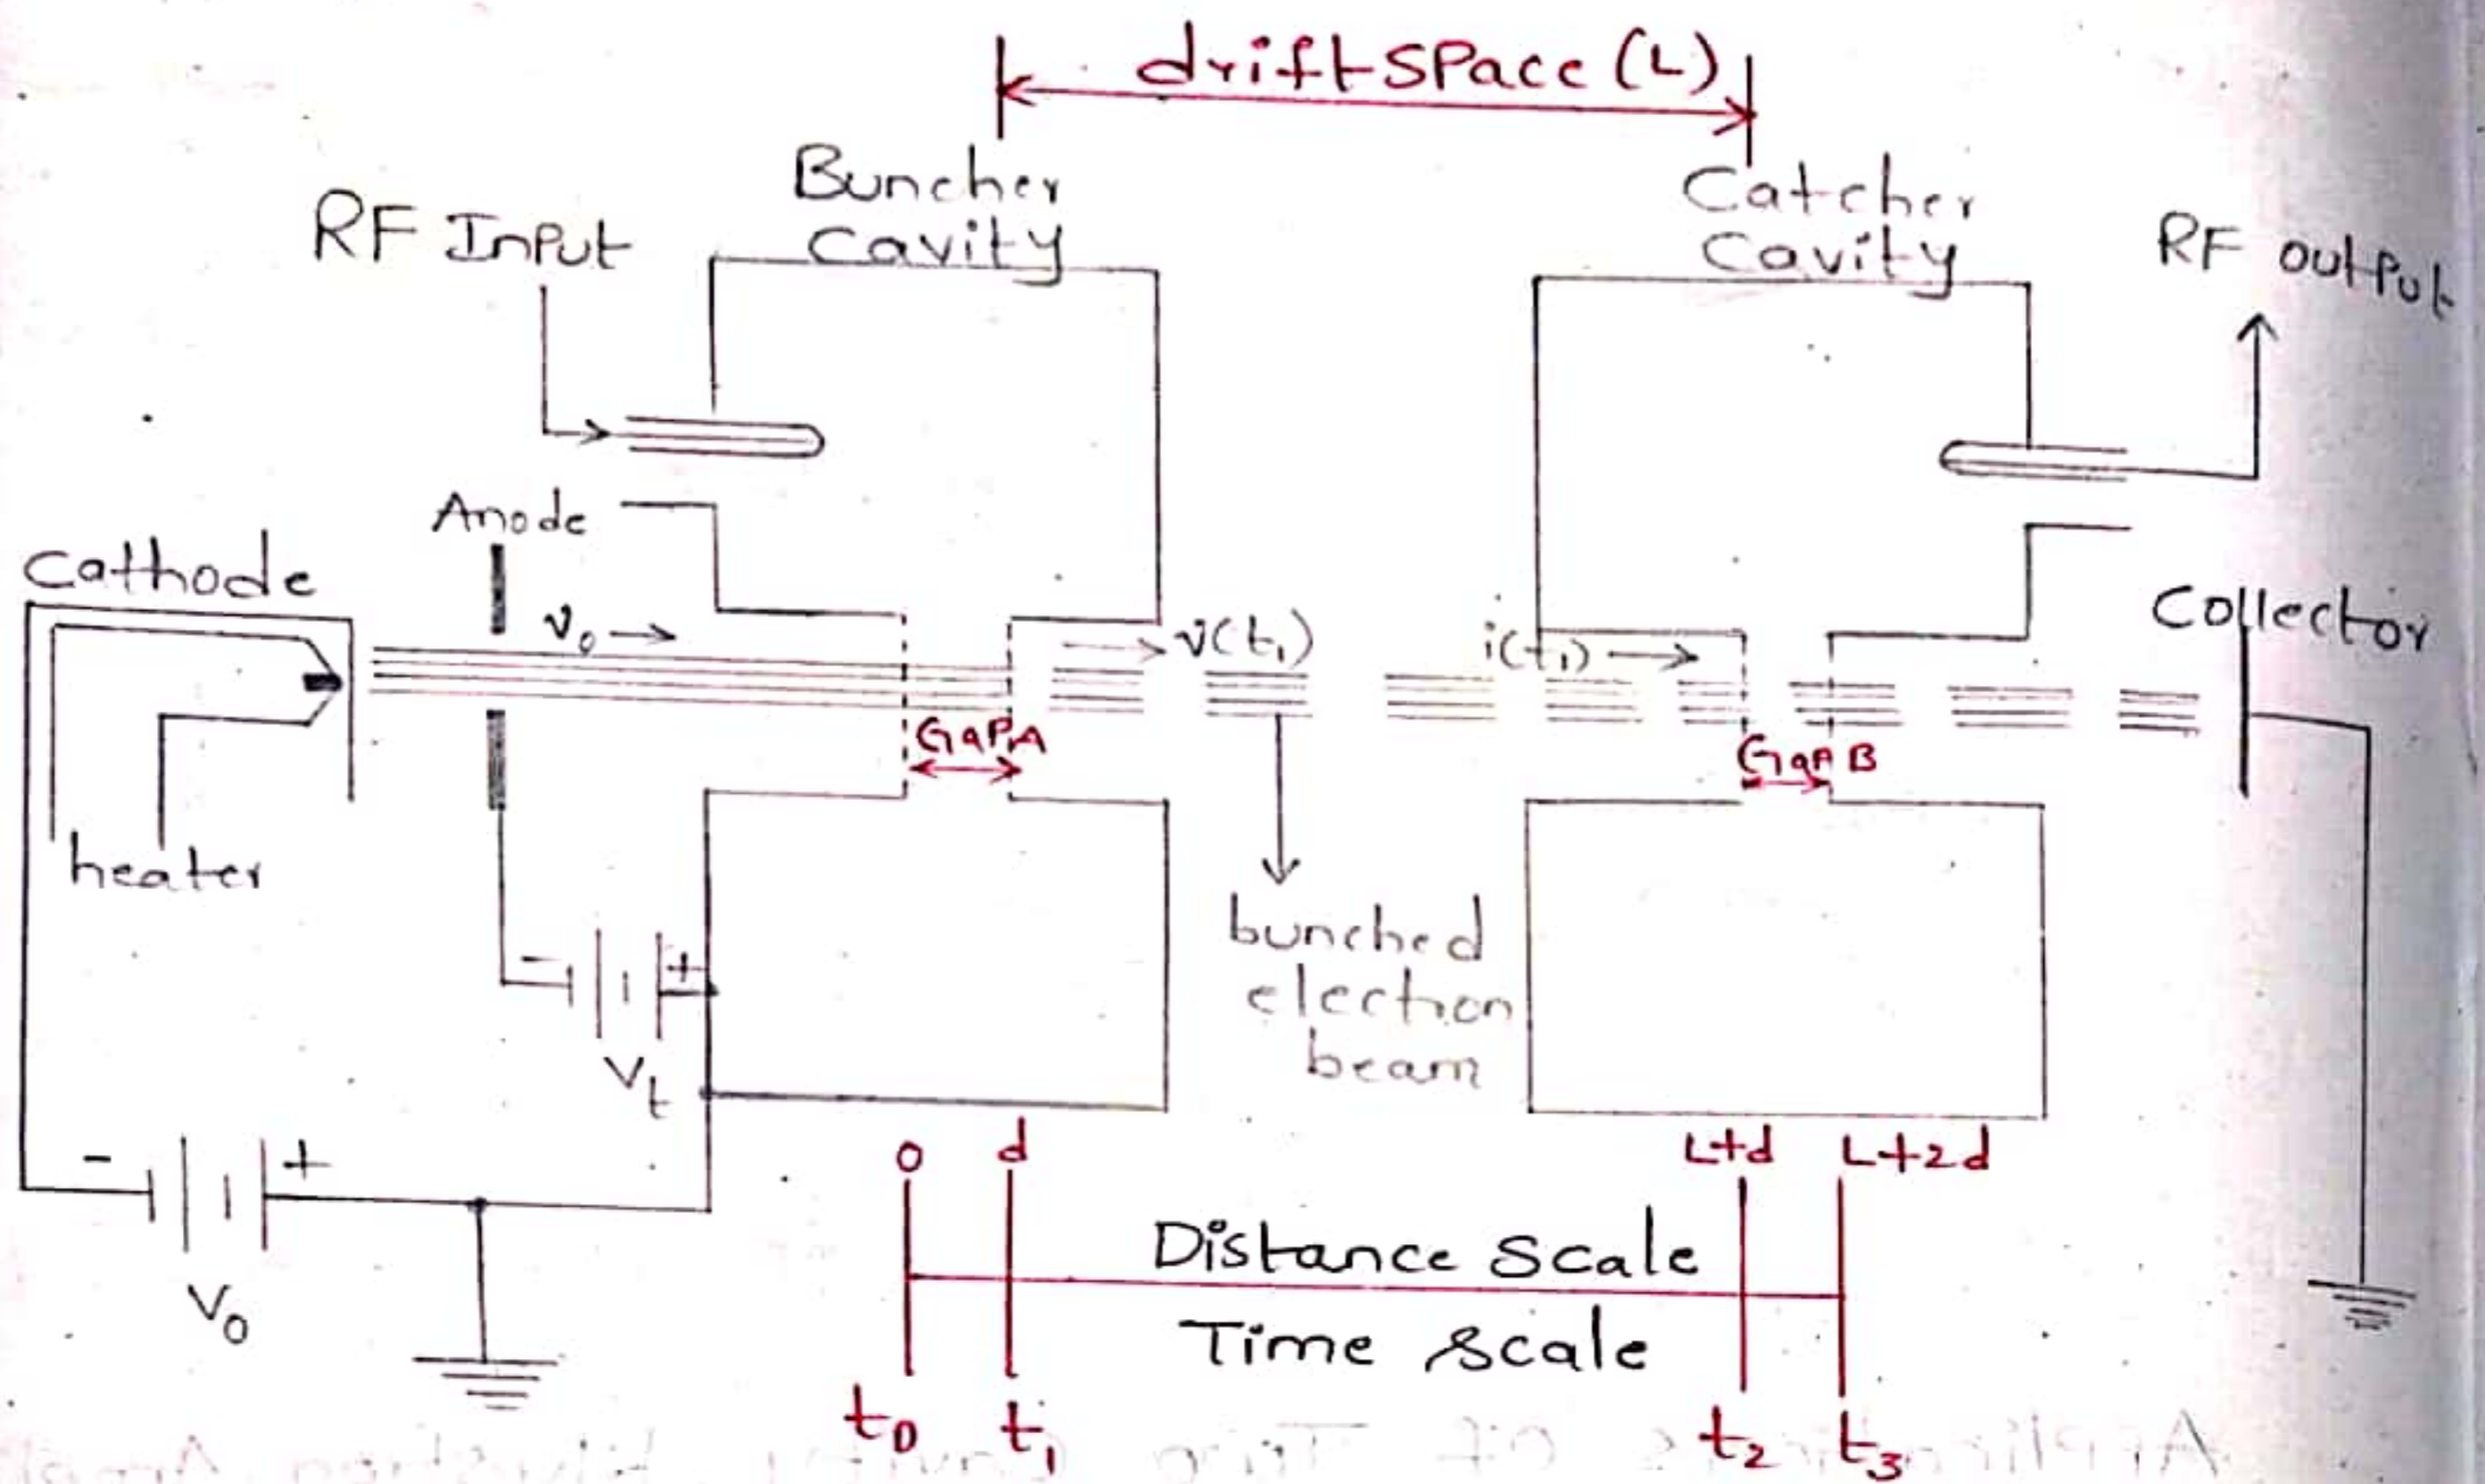 drift space (L)
Buncher
Cavity
Catcher
Cavity
RF Input
RF output
Anode
Cathode
v₀ →
v(t₁)
i(t₁) →
Collector
Gap A
Gap B
heater
bunched
electron
beam
- +
Vt
- +
V₀
0 d L+d L+2d
Distance Scale
Time Scale
t₀ t₁ t₂ t₃